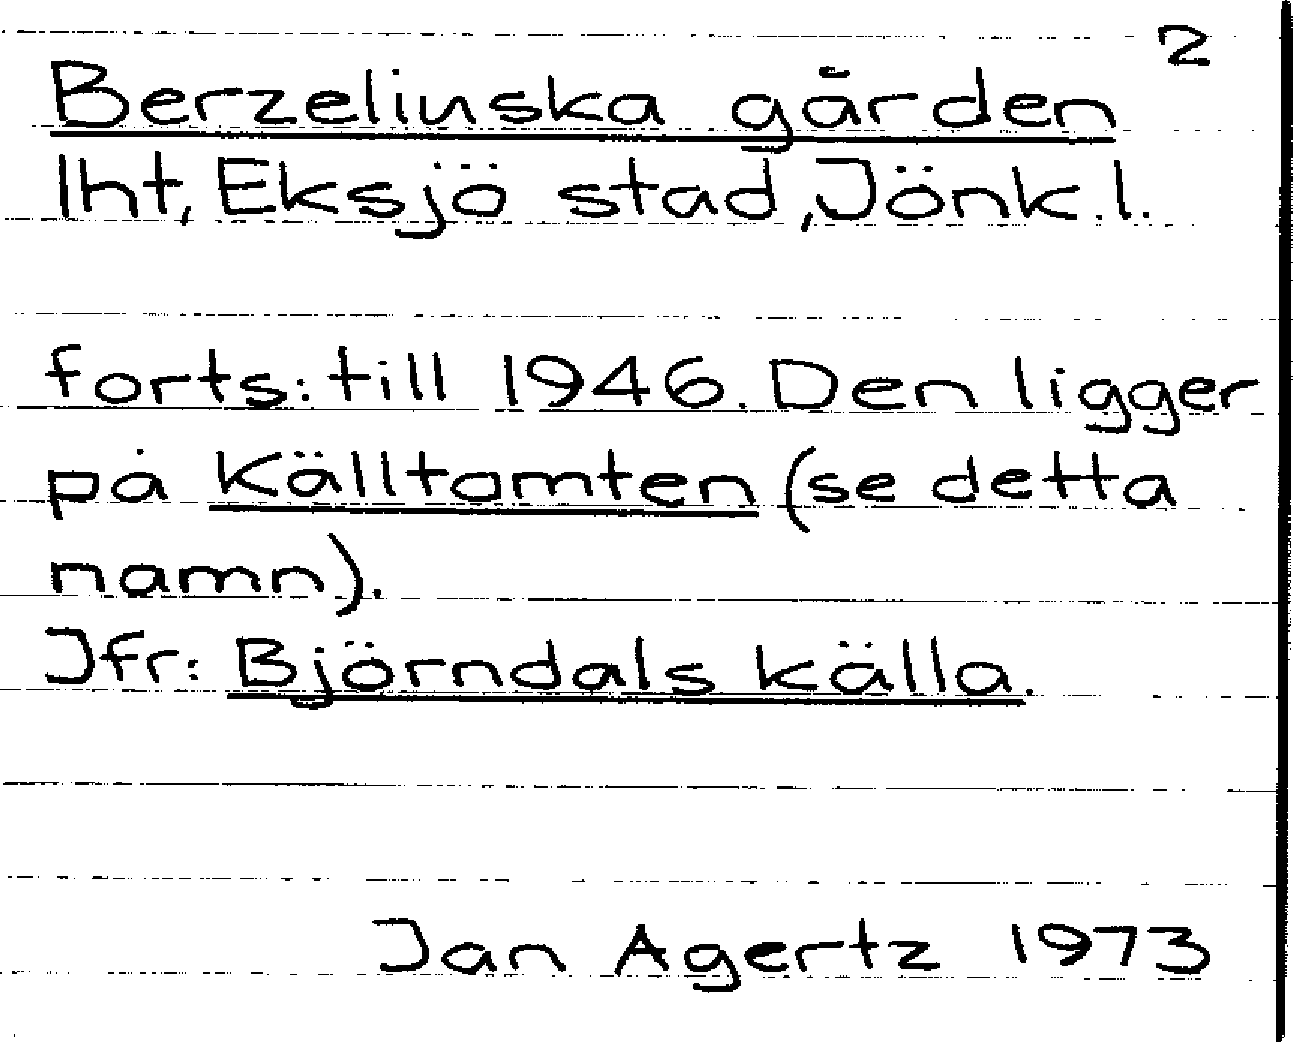 2
Berzeliuska gården
lht, Eksjö stad, Jönk.l.
forts: till 1946. Den ligger
på Källtomten (se detta
namn).
Jfr: Björndals källa.
Jan Agertz 1973